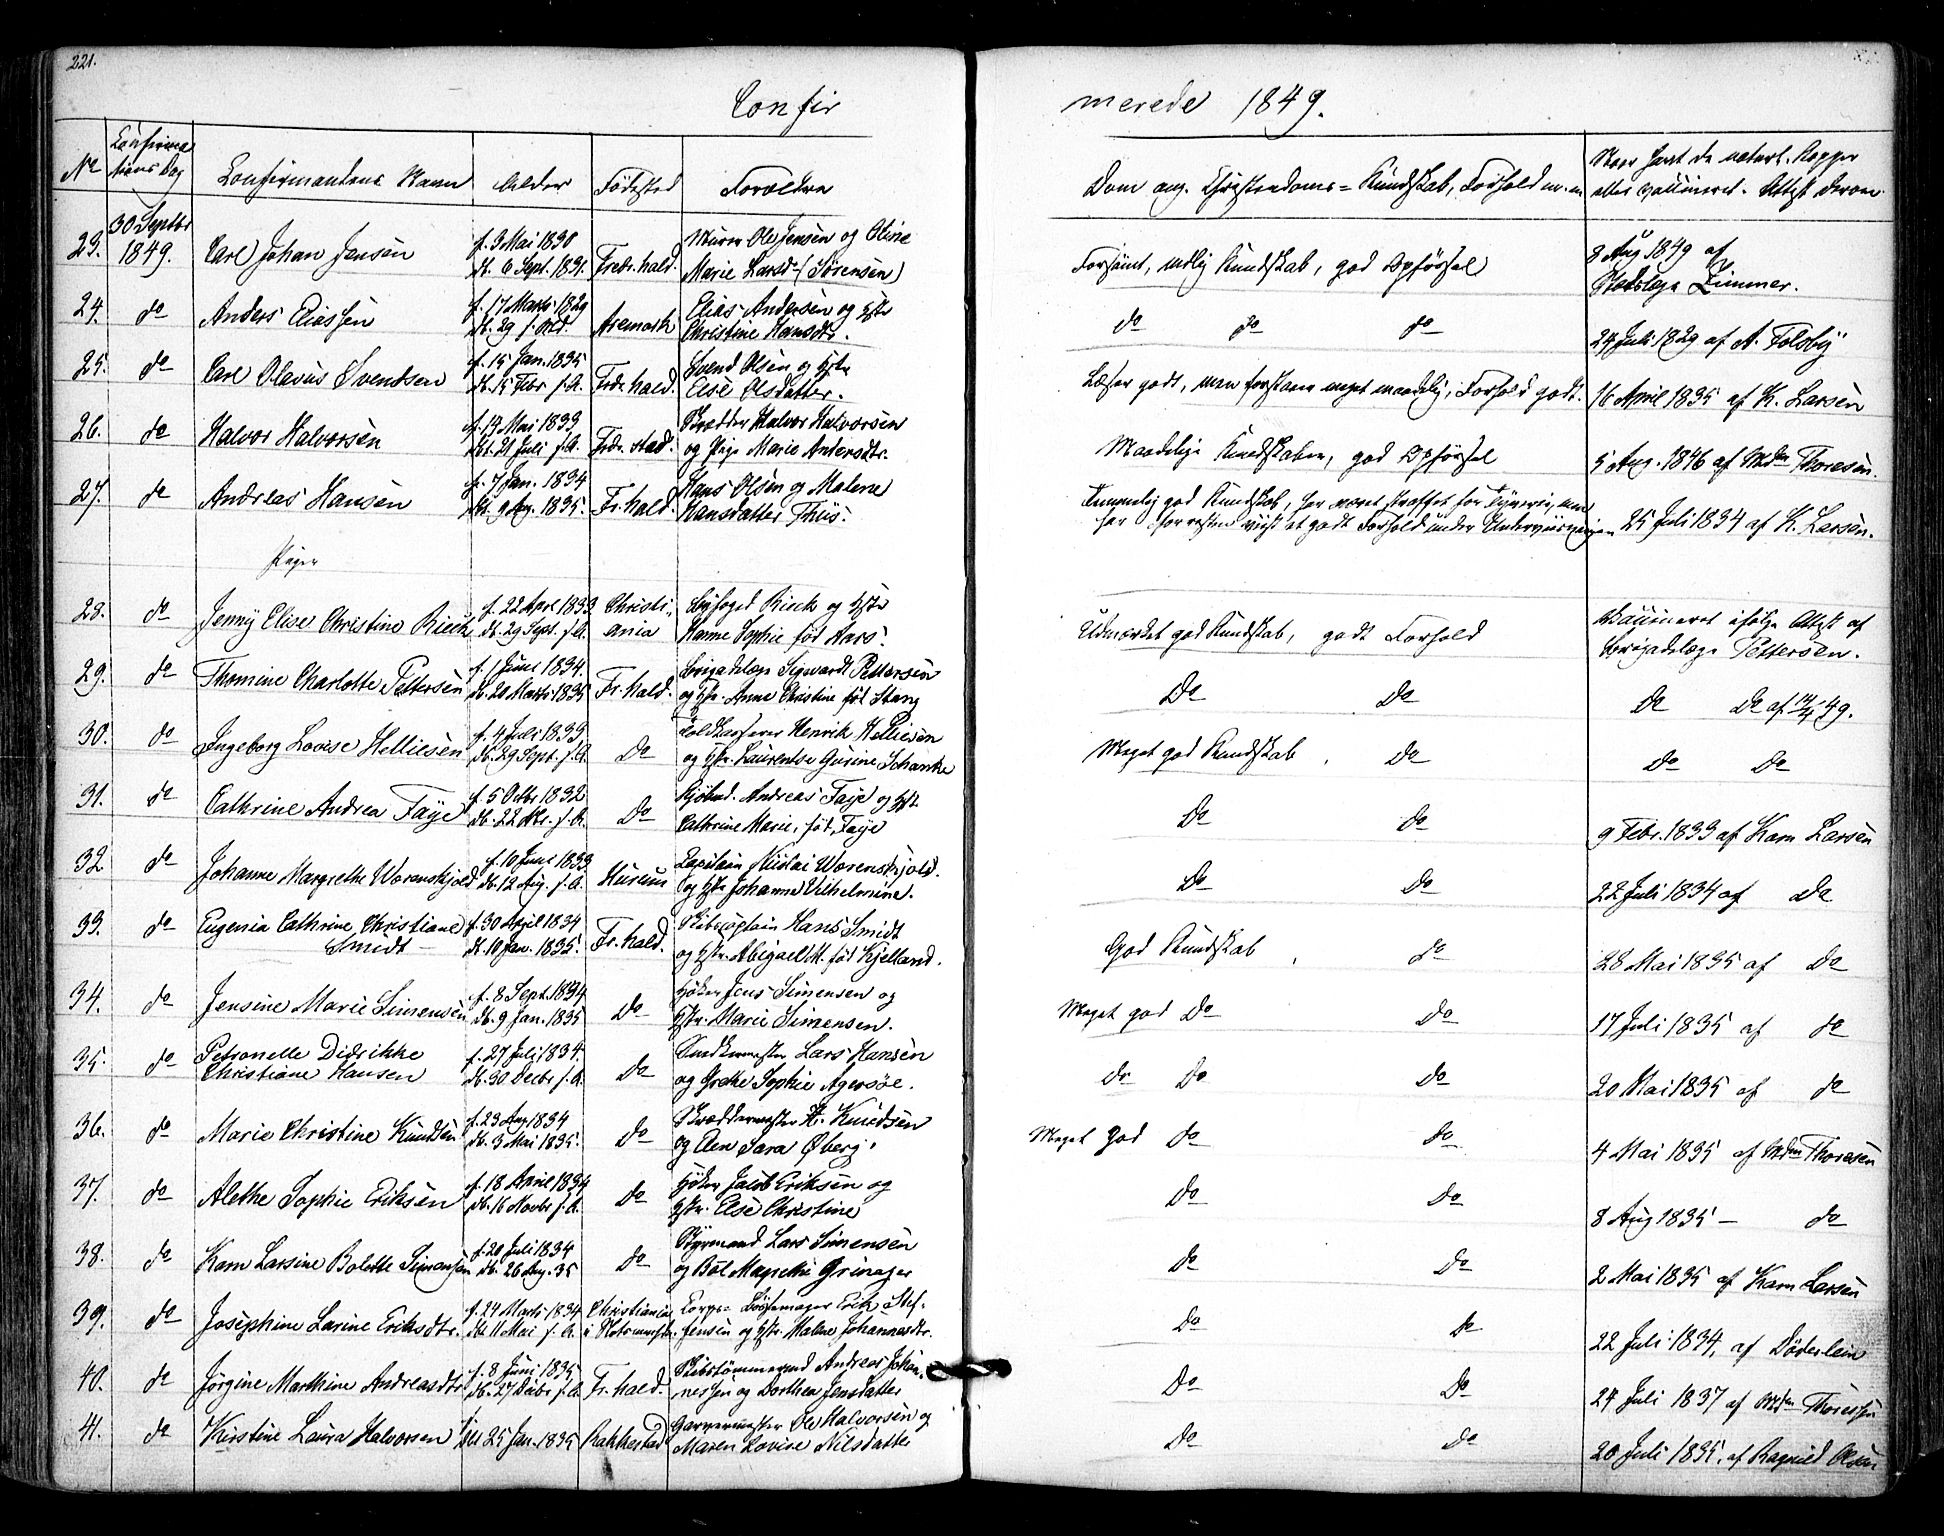 221.
Confir merede 1849.
No Confirmations Dag Confirmandens Navn Alder Födested Forældre Dom ang. Christendoms-Kundskab, Forhold m.m.
naturl. Kopper eller vaccineret. Attest derom
23. 30 Septbr 1849. Carl Johan Jensen f. 3 Mai 1830 db. 6 Sept. 1831. Fredr.hald. Murer Ole Jensen og Oline
Marie Larsd. (Sørensen) Forsömt, god Opförsel 8 Aug 1849 af
Zimmer.
24. do Anders Eliassen f. 17 Marts 1829 db. 29 s. Md. Aremark Elias Andersen og Hstr
Christine Hansdtr. do do do 24 Juli 1829 af A. Folsby
25. do Carl Olavus Svendsen f. 15 Jan. 1835 db. 15 Febr s.A. Fredr.hald. Svend Olsen og Hstr
Else Olsdatter. Læser godt, men forstaar meget maadelig, Forhold godt. 16 April 1835 af K. Larsen
26. do Halvor Halvorsen f. 19 Mai 1833 db. 21 Juli s.A. Fredr.stad. Skrædder Halvor Halvorsen
og Pige Marie Andersdtr. Maadelige Kundskaber, god Opförsel 5 Aug. 1846 af Mdm Thoresen.
27. do Andreas Hansen f. 7 Jan. 1834 db. 9 Aug. 1835. Fr.hald. Hans Olsen og Malene
Hansdatter Thiis. Temmelig god Kundskab, har været straffet for Tyverie, men
har forresten viist et godt Forhold under Underviisningen 25 Juli 1834 af K. Larsen.
Piger
28. do Jenny Elise Christine Rieck f. 22 Apr 1833 db. 29 Sept. s.A. Christiania Byfoged Rieck og Hstr
Hanne Sophie föd Hars. Udmærket god Kundskab, godt Forhold Vaccineret ifölge Attest af
Brigadelæge Pettersen.
29. do Thomine Charlotte Pettersen f. 1 Juni 1834. db. 20 Marts 1835 Fr.hald. Brigadelæge Sigwardt Pettersen
og Hstr. Anne Christine föd Stang Do Do Do Do af 14/4 49.
30. do Ingeborg Lovise Helliesen f. 4 Juli 1833 db. 29 Sept. s.A. Do Toldkasserer Henrik Helliesen
og Hstr. Laurentse Gurine Schanke Meget god Kundskab, Do Do Do
31. do Cathrine Andrea Faye f. 5 Octbr 1832 db. 22 s.A. Do Kjöbmd. Andreas Faye og Hstr
Cathrine Marie, föd Faye Do Do 9 Febr. 1833 af Karn Larsen
32. do Johanne Margrethe Worenskjold f. 10 Juni 1833 db. 12 Aug. s.A. Hurum Capitain Nicolai Worenskjold.
og Hstr Johanne Vilhelmine. Do Do 22 Juli 1834 af Do
33. do Eugenia Cathrine Christiane
Smidt f. 30 April 1834 db. 10 Jan. 1835. Fr.hald. Skibscaptain Hans Smidt
og Hstr. Abigael M. föd Kjelland. God Kundskab, do 28 Mai 1835 af Do
34. do Jensine Marie Simensen f. 8 Sept. 1834 db. 9 Jan. 1835 Do Höker Jens Simensen og
Hstr. Marie Simensen. Meget god Do Do 17 Juli 1835 af do
35. do Petronelle Didrikke
Christiane Hansen f. 27 Juli 1834. db. 30 Decbr s.A. Do Snedkermester Lars Hansen
og Grethe Sophie Agersöe. do Do Do 20 Mai 1835 af do
36. do Marie Christine Knudsen f. 23 Aug 1834 db. 3 Mai 1835. Do Skræddermester H. Knudsen
og Elen Sara Øberg. Meget god do Do 4 Mai 1835 af Mdm Thoresen
37. do Alethe Sophie Eriksen f. 18 April 1834 db. 16 Novbr s.A. Do Höker Jacob Eriksen og
Hstr. Else Christine Do Do 8 Aug 1835 - do
38. do Karn Larsine Bolette Simensen f. 20 Juli 1834 db. 26 Aug. 35 do Styrmand Lars Simensen
og Böl Magrethe Grinager Do Do 2 Mai 1835 af Karn Larsen
39. do Josephine Larine Eriksdtr. f. 24 Marts 1834 db. 11 Mai s.A. Christiania Corps-Bössemager Erik Stef-
fensen og Hstr. Malene Johannesdtr. Do Do 22 Juli 1834, af Döderlein
40. do Jörgine Marthine Andreasdtr. f. 8 Juni 1835 db. 27 Decbr s.A. Fr.hald. Skibstömmermd Andreas Johan-
nessen og Dorthea Jensdatter Do Do 24 Juli 1837 af Mdm Thoresen
41. do Kirstine Laura Halvorsen db. 25 Jan. 1835 Rakkestad Garvermester Ole Halvorsen og
Maren Lovise Nilsdatter Do Do 20 Juli 1835. af Ragnild Olsen